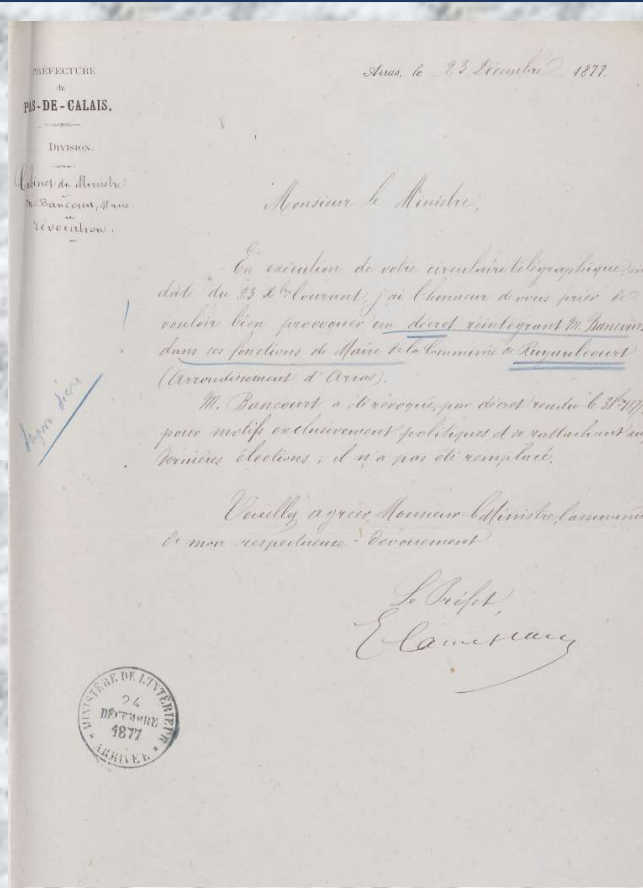 PRÉFECTURE
du
PAS-DE-CALAIS.
DIVISION.
Cabinet du Ministre
M. Bancourt, Maire
révocation.
Arras, le 23 Décembre 1877.
Monsieur le Ministre,
En exécution de votre circulaire télégraphique en
date du 23 Xbre Courant, j'ai l'honneur de vous prier de
vouloir bien provoquer un décret réintégrant M. Bancourt
dans ses fonctions de Maire de la Commune de Ruyaulcourt
(Arrondissement d'Arras).
M. Bancourt a été révoqué, par décret rendu le
pour motifs exclusivement politiques et se rattachant aux
dernières élections ; il n'a pas été remplacé.
Veuillez agréer, Monsieur le Ministre, l'assurance
de mon respectueux dévouement
Le Préfet,
MINISTÈRE DE L'INTÉRIEUR
24
DÉCEMBRE
1877
ARRIVÉE